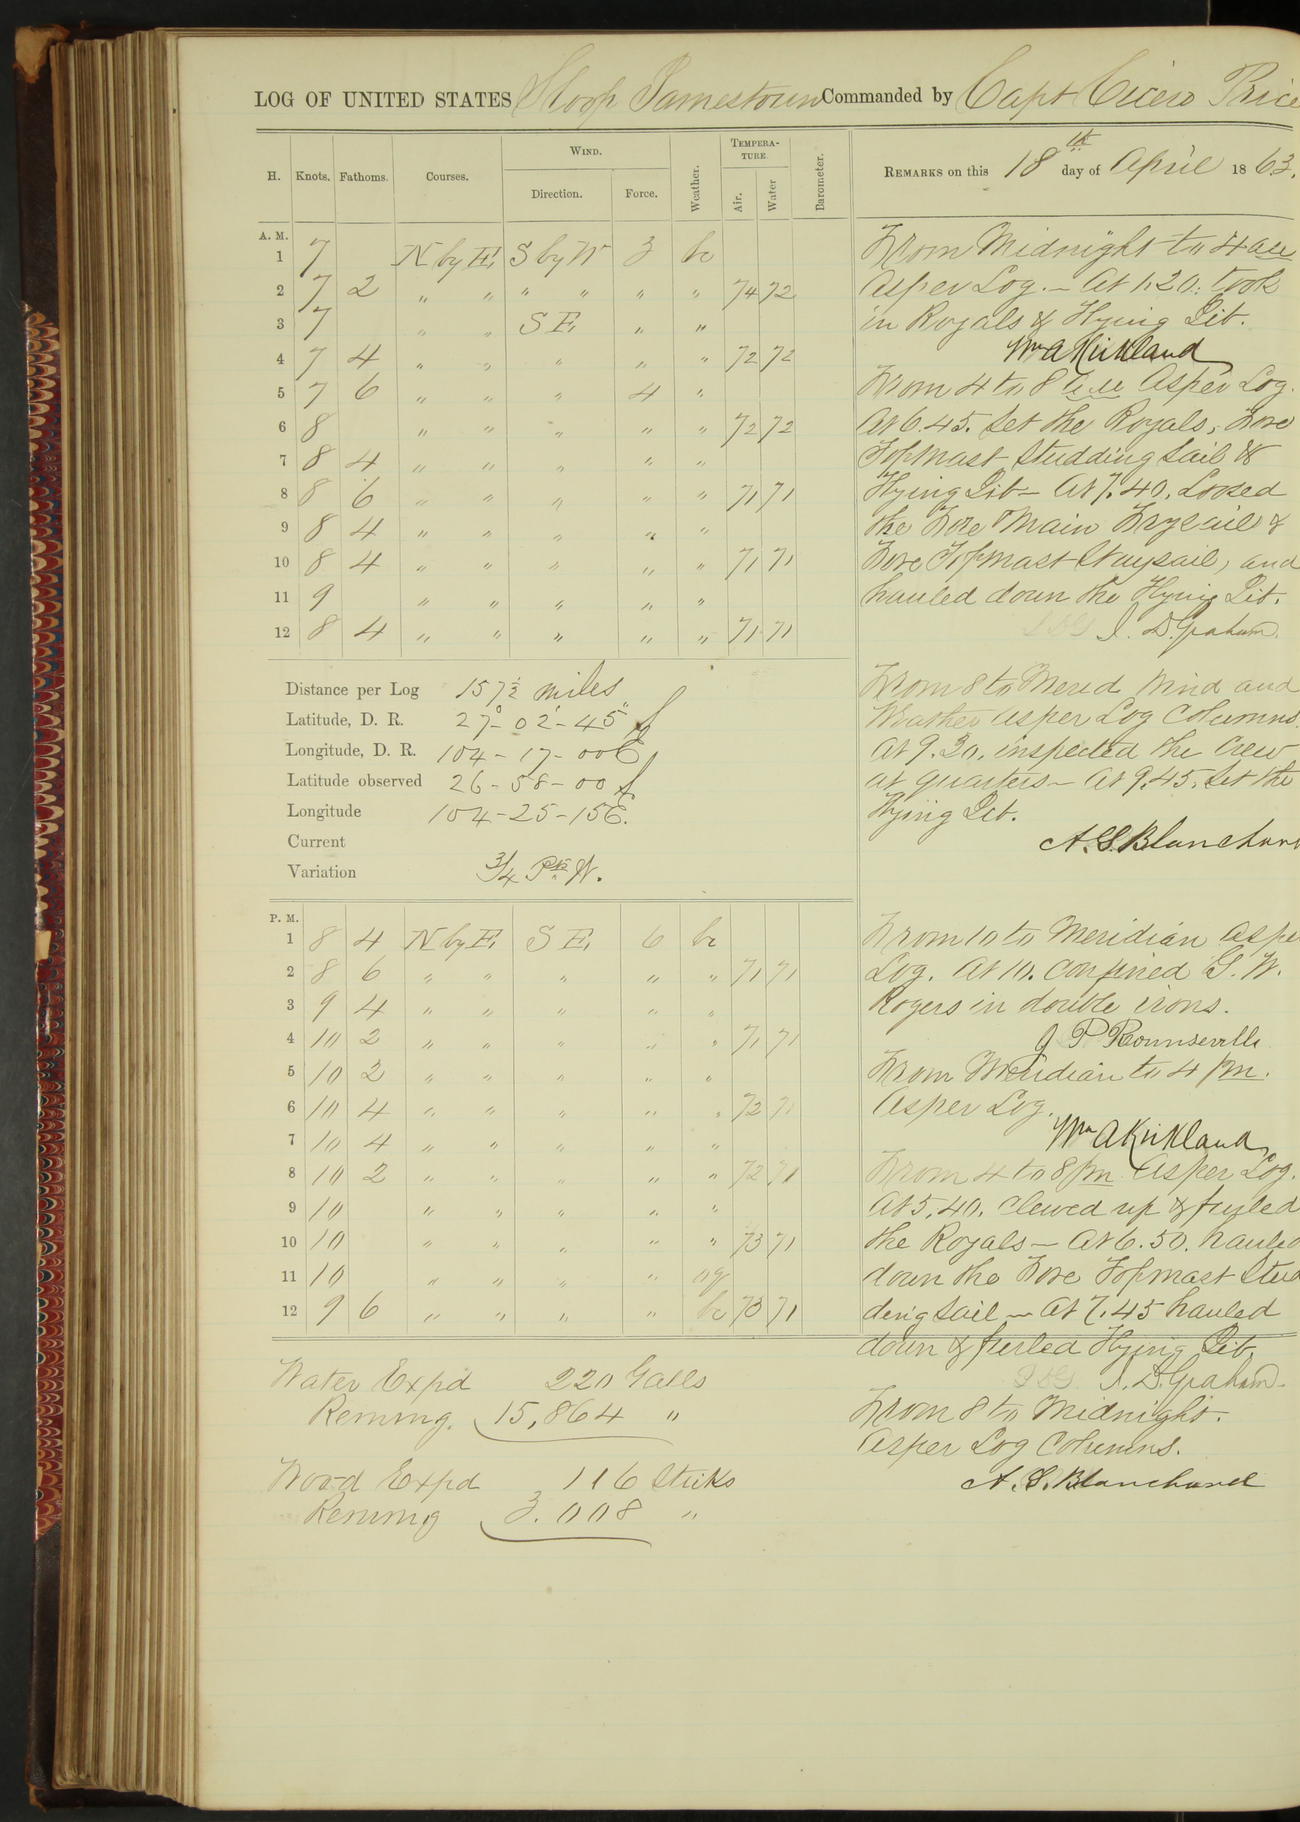 LOG OF UNITED STATES Sloop Jamestown Commanded by Capt Cicero Price
H. Knots. Fathoms. Courses. WIND. Direction. Force. Weather. TEMPERATURE. Air. Water Barometer. REMARKS on this 18th day of April 1863.
A. M.
1 7 N by E, S by W 3 bc
2 7 2 " " " " " " 74 72
3 7 " " S E, " "
4 7 4 " " " " " 72 72
5 7 6 " " " 4 "
6 8 " " " " " 72 72
7 8 4 " " " " "
8 8 6 " " " " " 71 71
9 8 4 " " " " "
10 8 4 " " " " " 71 71
11 9 " " " " "
12 8 4 " " " " " 71 71
Distance per Log 157½ miles
Latitude, D. R. 27°-02'-45" S
Longitude, D. R. 104-17-00 E
Latitude observed 26-58-00 S
Longitude 104-25-15 E.
Current
Variation ¾ Pts W.
P. M.
1 8 4 N by E, S E, 6 bc
2 8 6 " " " " " 71 71
3 9 4 " " " " "
4 10 2 " " " " " 71 71
5 10 2 " " " " "
6 10 4 " " " " " 72 71
7 10 4 " " " " "
8 10 2 " " " " " 72 71
9 10 " " " " "
10 10 " " " " " 73 71
11 10 " " " " og
12 9 6 " " " " bc 73 71
Water Expd 220 Galls
Remng. 15,864 "
Wood Expd 116 Sticks
Remmg 3.008 "
From Midnight to 4 am
Asper Log. - At 1.20. took
in Royals & Flying Jib.
Wm A Kirkland
From 4 to 8 am Asper Log.
At 6.45. Set the Royals, Fore
Topmast Studding Sail &
Flying Jib - At 7.40. Loosed
the Fore Main Trysail &
Fore Topmast Staysail, and
hauled down the Flying Jib.
J. D. Graham.
From 8 to Merid Wind and
Weather asper Log Columns
At 9.30. inspected the Crew
at quarters - At 9.45. Set the
Flying Jib.
A. S. Blanchard
From 10 to Meridian Asper
Log. At 10. confined G. W.
Rogers in double irons.
J P Rounseville
From Meridian to 4 pm.
Asper Log.
Wm A Kirkland
From 4 to 8 pm Asper Log.
At 5.40. Clewed up & furled
the Royals - At 6.50. hauled
down the Fore Topmast Stud
ding Sail - At 7.45 hauled
down & furled Flying Jib.
J. D. Graham.
From 8 to Midnight.
Asper Log Columns.
A. S. Blanchard